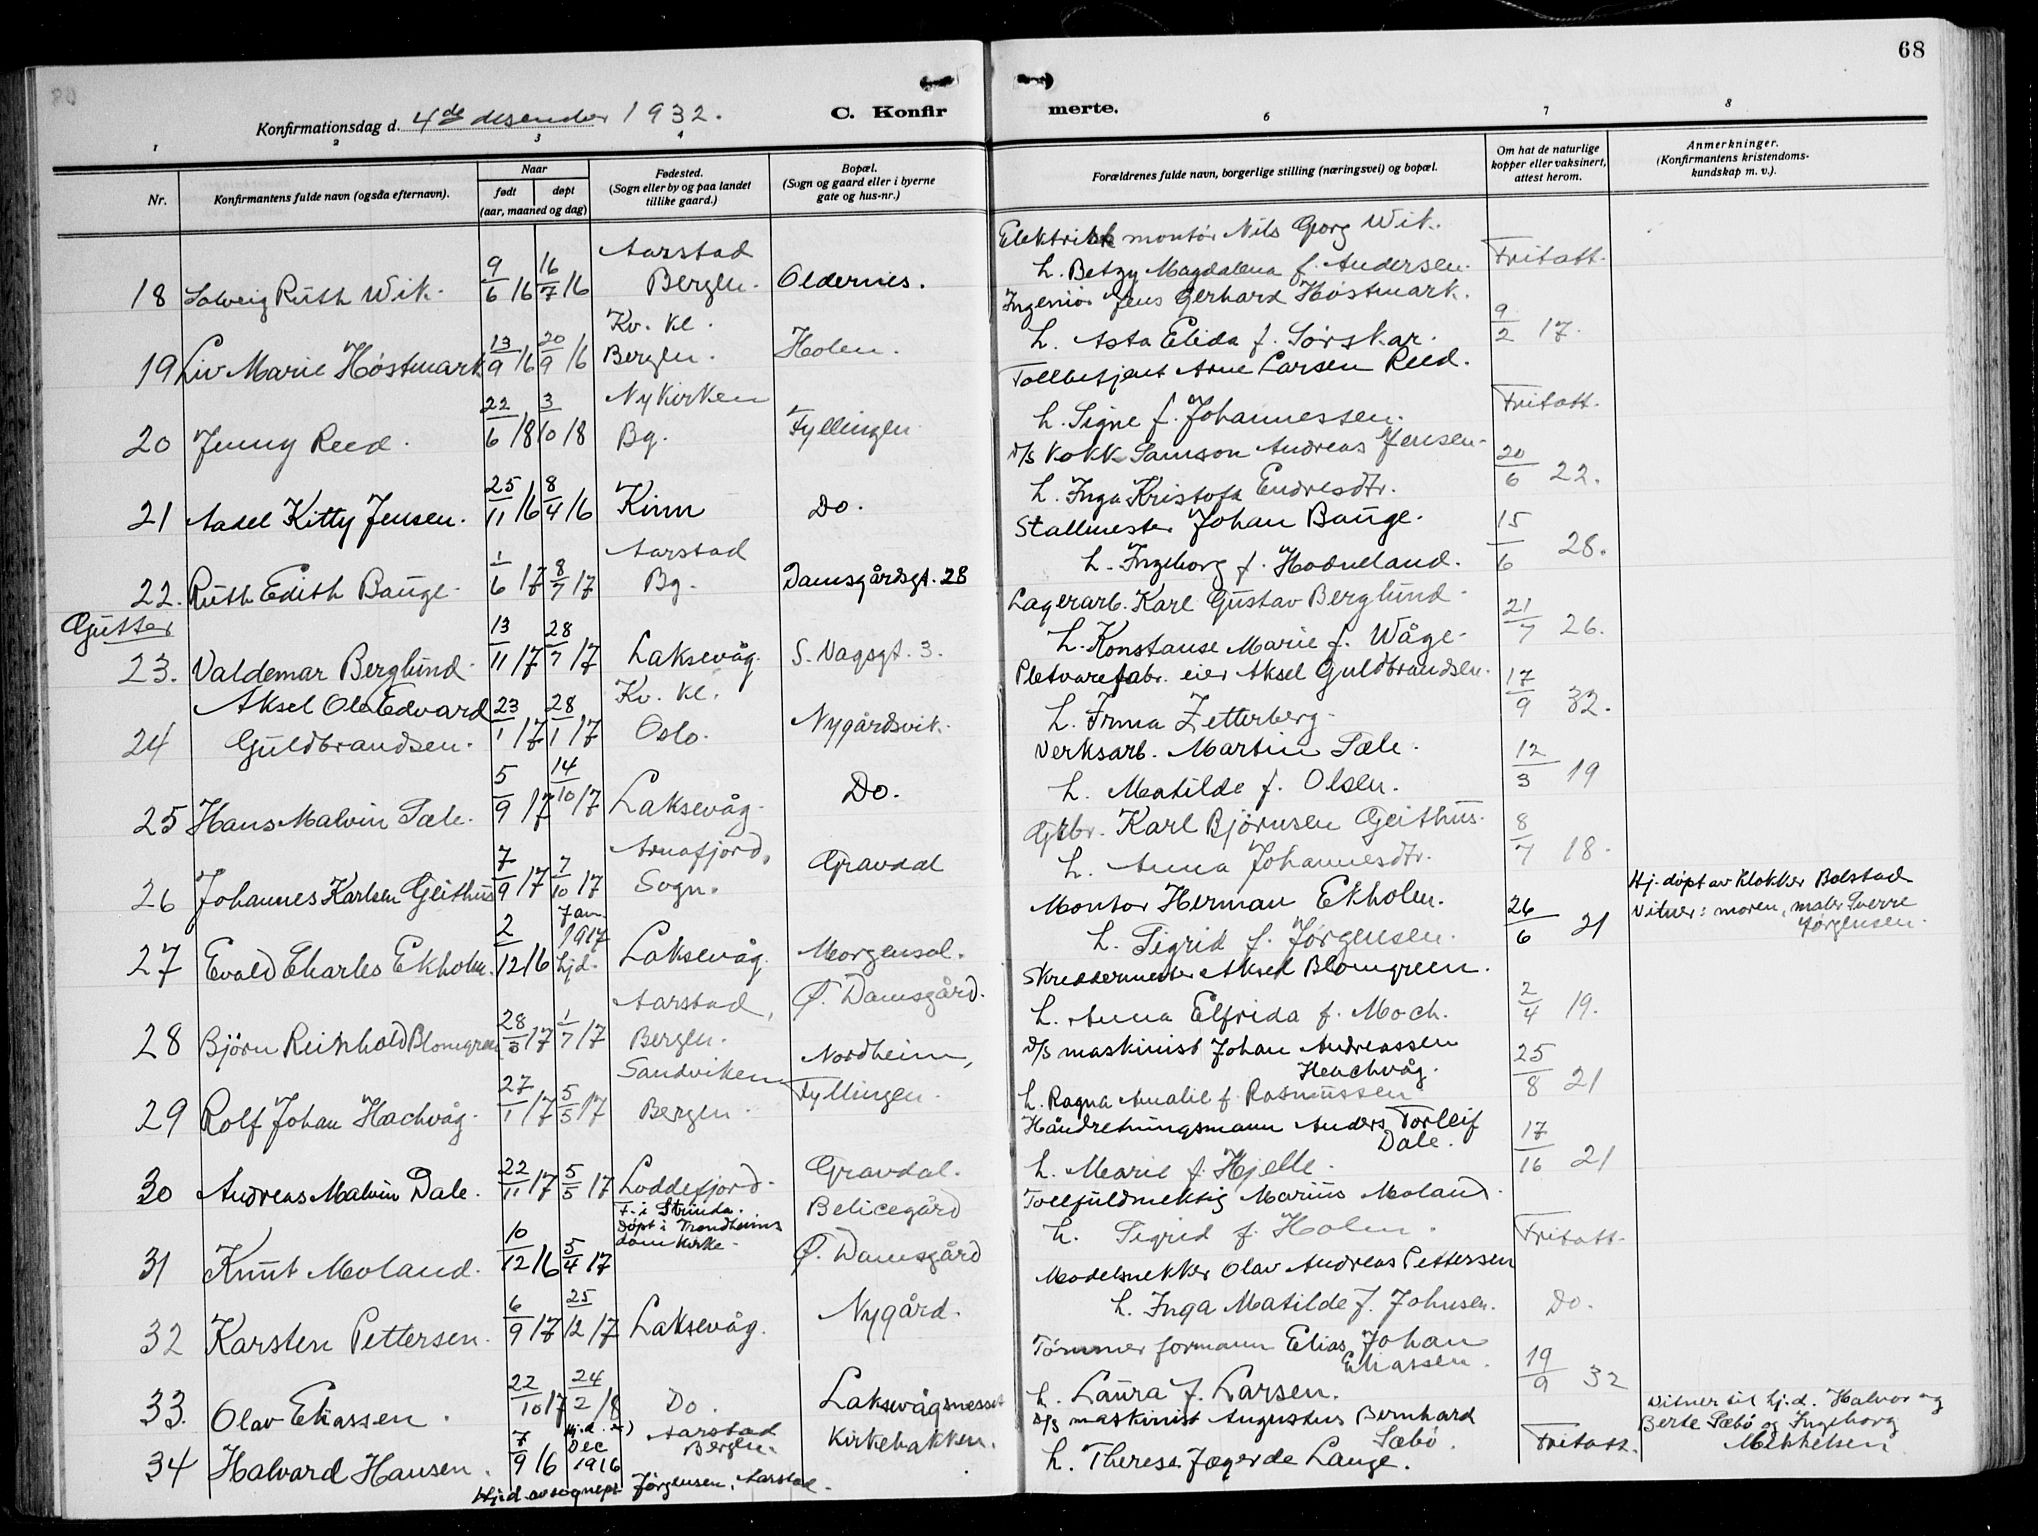 68
Konfirmationsdag d. 4de desember 1932.
C. Konfirmerte.
1 2 3 4 6 7 8
Nr.
Konfirmantens fulde navn (ogsaa efternavn).
Naar
født
døpt
(aar, maaned og dag)
Fødested.
(Sogn eller by og paa landet
tillike gaard.)
Bopæl.
(Sogn og gaard eller i byerne
gate og hus-nr.)
Forældrenes fulde navn, borgerlige stilling (næringsvei) og bopæl.
Om hat de naturlige
kopper eller vaksinert,
attest herom.
Anmerkninger.
(Konfirmantens kristendoms-
kundskap m. v.).
18 Solveig Ruth Wik. 9/6 16 16/7 16 Aarstad Bergen. Oldernes.
Elektrisk montør Nils Georg Wik.
h. Betzy Magdalena f. Andersen. Fritatt.
19 Liv Marie Høstmark 13/9 16 20/9 16 Kv. kl. Bergen. Holen.
Ingeniør Jens Gerhard Høstmark.
h. Asta Elida f. Sørskar. 9/2 17.
20 Jenny Reed. 22/6 18 3/10 18 Nykirken Bg. Fyllingen
Tollbetjent Arne Larsen Reed.
h. Signe f. Johannessen. Fritatt.
21 Aadel Kitty Jensen. 25/11 16 8/4 16 Kinn Do.
D/S Kokk Samson Andreas Jensen.
h. Inga Kristofa Endresdtr. 20/6 22.
22. Ruth Edith Bauge. 1/6 17 8/7 17 Aarstad Bg. Damsgårdsgt. 28
Stallmester Johan Bauge.
h. Ingeborg f. Hodneland. 15/6 28.
Gutter
23. Valdemar Berglund. 13/11 17 28/7 17 Laksevåg. S. Vagsgt. 3.
Lagerarb. Karl Gustav Berglund.
h. Konstanse Marie f. Wåge. 21/7 26.
24 Aksel Ole Edvard Guldbrandsen. 23/1 17 28/1 17 Kv. kl. Oslo. Nygårdsvik.
Pletvarefabr. eier Aksel Guldbrandsen.
h. Irma Zetterberg. 17/9 32.
25 Hans Malvin Sæle. 5/9 17 14/10 17 Laksevåg. Do.
Verksarb. Martin Sæle.
h. Matilde f. Olsen. 12/3 19
26 Johannes Karlsen Geithus 7/9 17 7/10 17 Arnafjord, Sogn. Gravdal
Gbr. Karl Bjørnsen Geithus.
h. Anna Johannesdtr. 8/7 18.
27 Evald Charles Ekholm. 2/12 16 Jan. 1917 hjd. Laksevåg. Morgensol.
Montør Herman Ekholm.
h. Sigrid f. Jørgensen. 26/6 21
Hj. døpt av klokker Bolstad
Vitner: moren, maler Sverre
Jørgensen.
28 Bjørn Reinhold Blomgreen 28/3 17 1/7 17 Aarstad, Bergen. Ø. Damsgård.
Skreddermester Aksel Blomgreen.
h. Anna Elfrida f. Moch. 2/4 19.
29 Rolf Johan Hachvåg. 27/1 17 5/5 17 Sandviken Bergen. Nordheim, Fyllingen.
D/S maskinist Johan Andreassen
Heachvåg.
h. Ragna Amalie f. Rasmussen 25/8 21
30 Andreas Malvin Dale. 22/11 17 5/5 17 Loddefjord. Gravdal.
Håndretningsmann Anders Torleif
Dale.
h. Marie f. Hjelle. 17/16 21
31 Knut Moland. 10/12 16 5/4 17 F. i Strinda. Døpt i Trondheims domkirke. Belicegård Ø. Damsgård
Tollfuldmektig Marius Moland.
h. Sigrid f. Holm. Fritatt.
32 Karsten Pettersen. 6/9 17 25/12 17 Laksevåg. Nygård.
Modelsnekker Olav Andreas Pettersen
h. Inga Matilde f. Johnsen. Do.
33. Olav Eliassen. 22/10 17 24/2 18 Do. Laksevågsnesset
Tømmerformann Elias Johan
Eliassen.
h. Laura f. Larsen. 19/9 32
34 Halvard Hansen. 7/9 16 Hj.d. x) Dec 1916 Aarstad Bergen. Kirkebakken.
D/S maskinist Augustus Bernhard
Sæbø.
h. Therese Jægerde Lange. Fritatt.
Vitner til hj.d. Halvor og
Berte Sæbø og Ingeborg
Mikkelsen
Hj.d. av sognepr. Jørgensen, Aarstad.